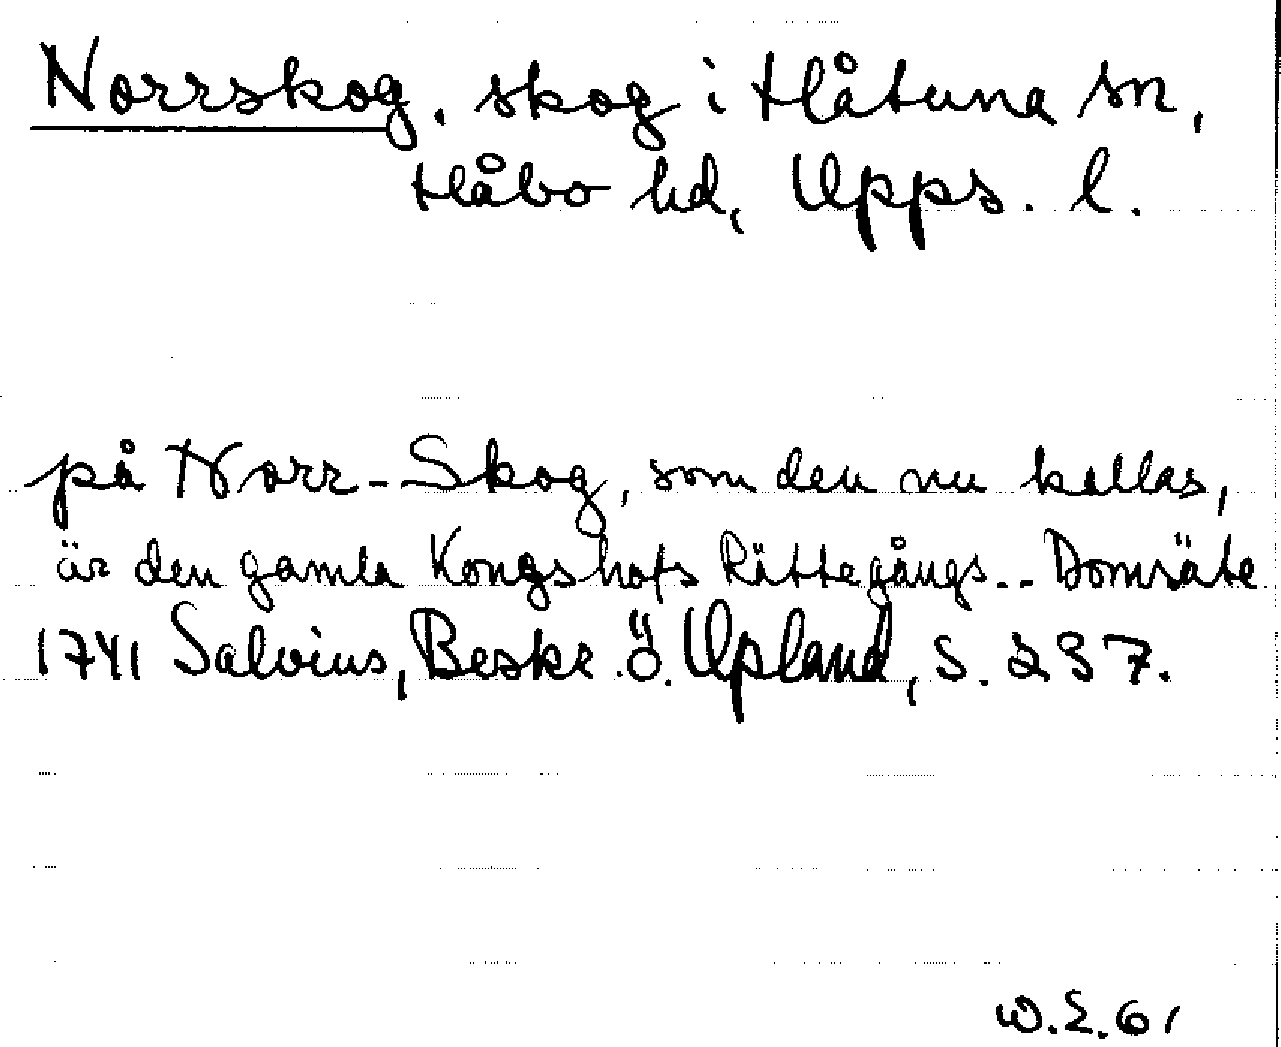 Norrskog, skog i Håtuna sn,
Håbo hd, Upps. l.
på Norr-Skog, som den nu kallas,
är den gamla Kongshofs Rättegångs.. Domsäte
1741 Salvius, Beskr. ö. Upland, S. 237.
W.E. 61